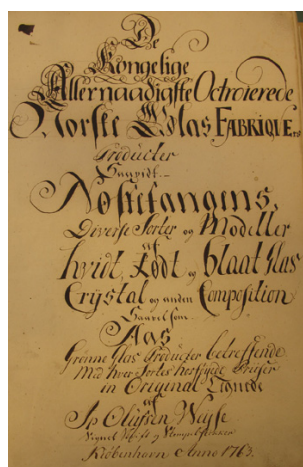 De
Kongelige
Allernaadigste Octroierede
Norske Glas FABRIQUE,rs
Producter
Saavidt
Nøstetangens,
Diverse Sorter og Modeller
af
hvidt, Rødt og Blaat Glas
Crystal og anden Composition
Saavelsom
Aas
Grønne Glas Producter betreffende
Med hver Sortes hosføyede Priiser
in Original Tegnede
af
Ip Olufsen Weyse
Signet
Kiöbenhavn Anno 1763.